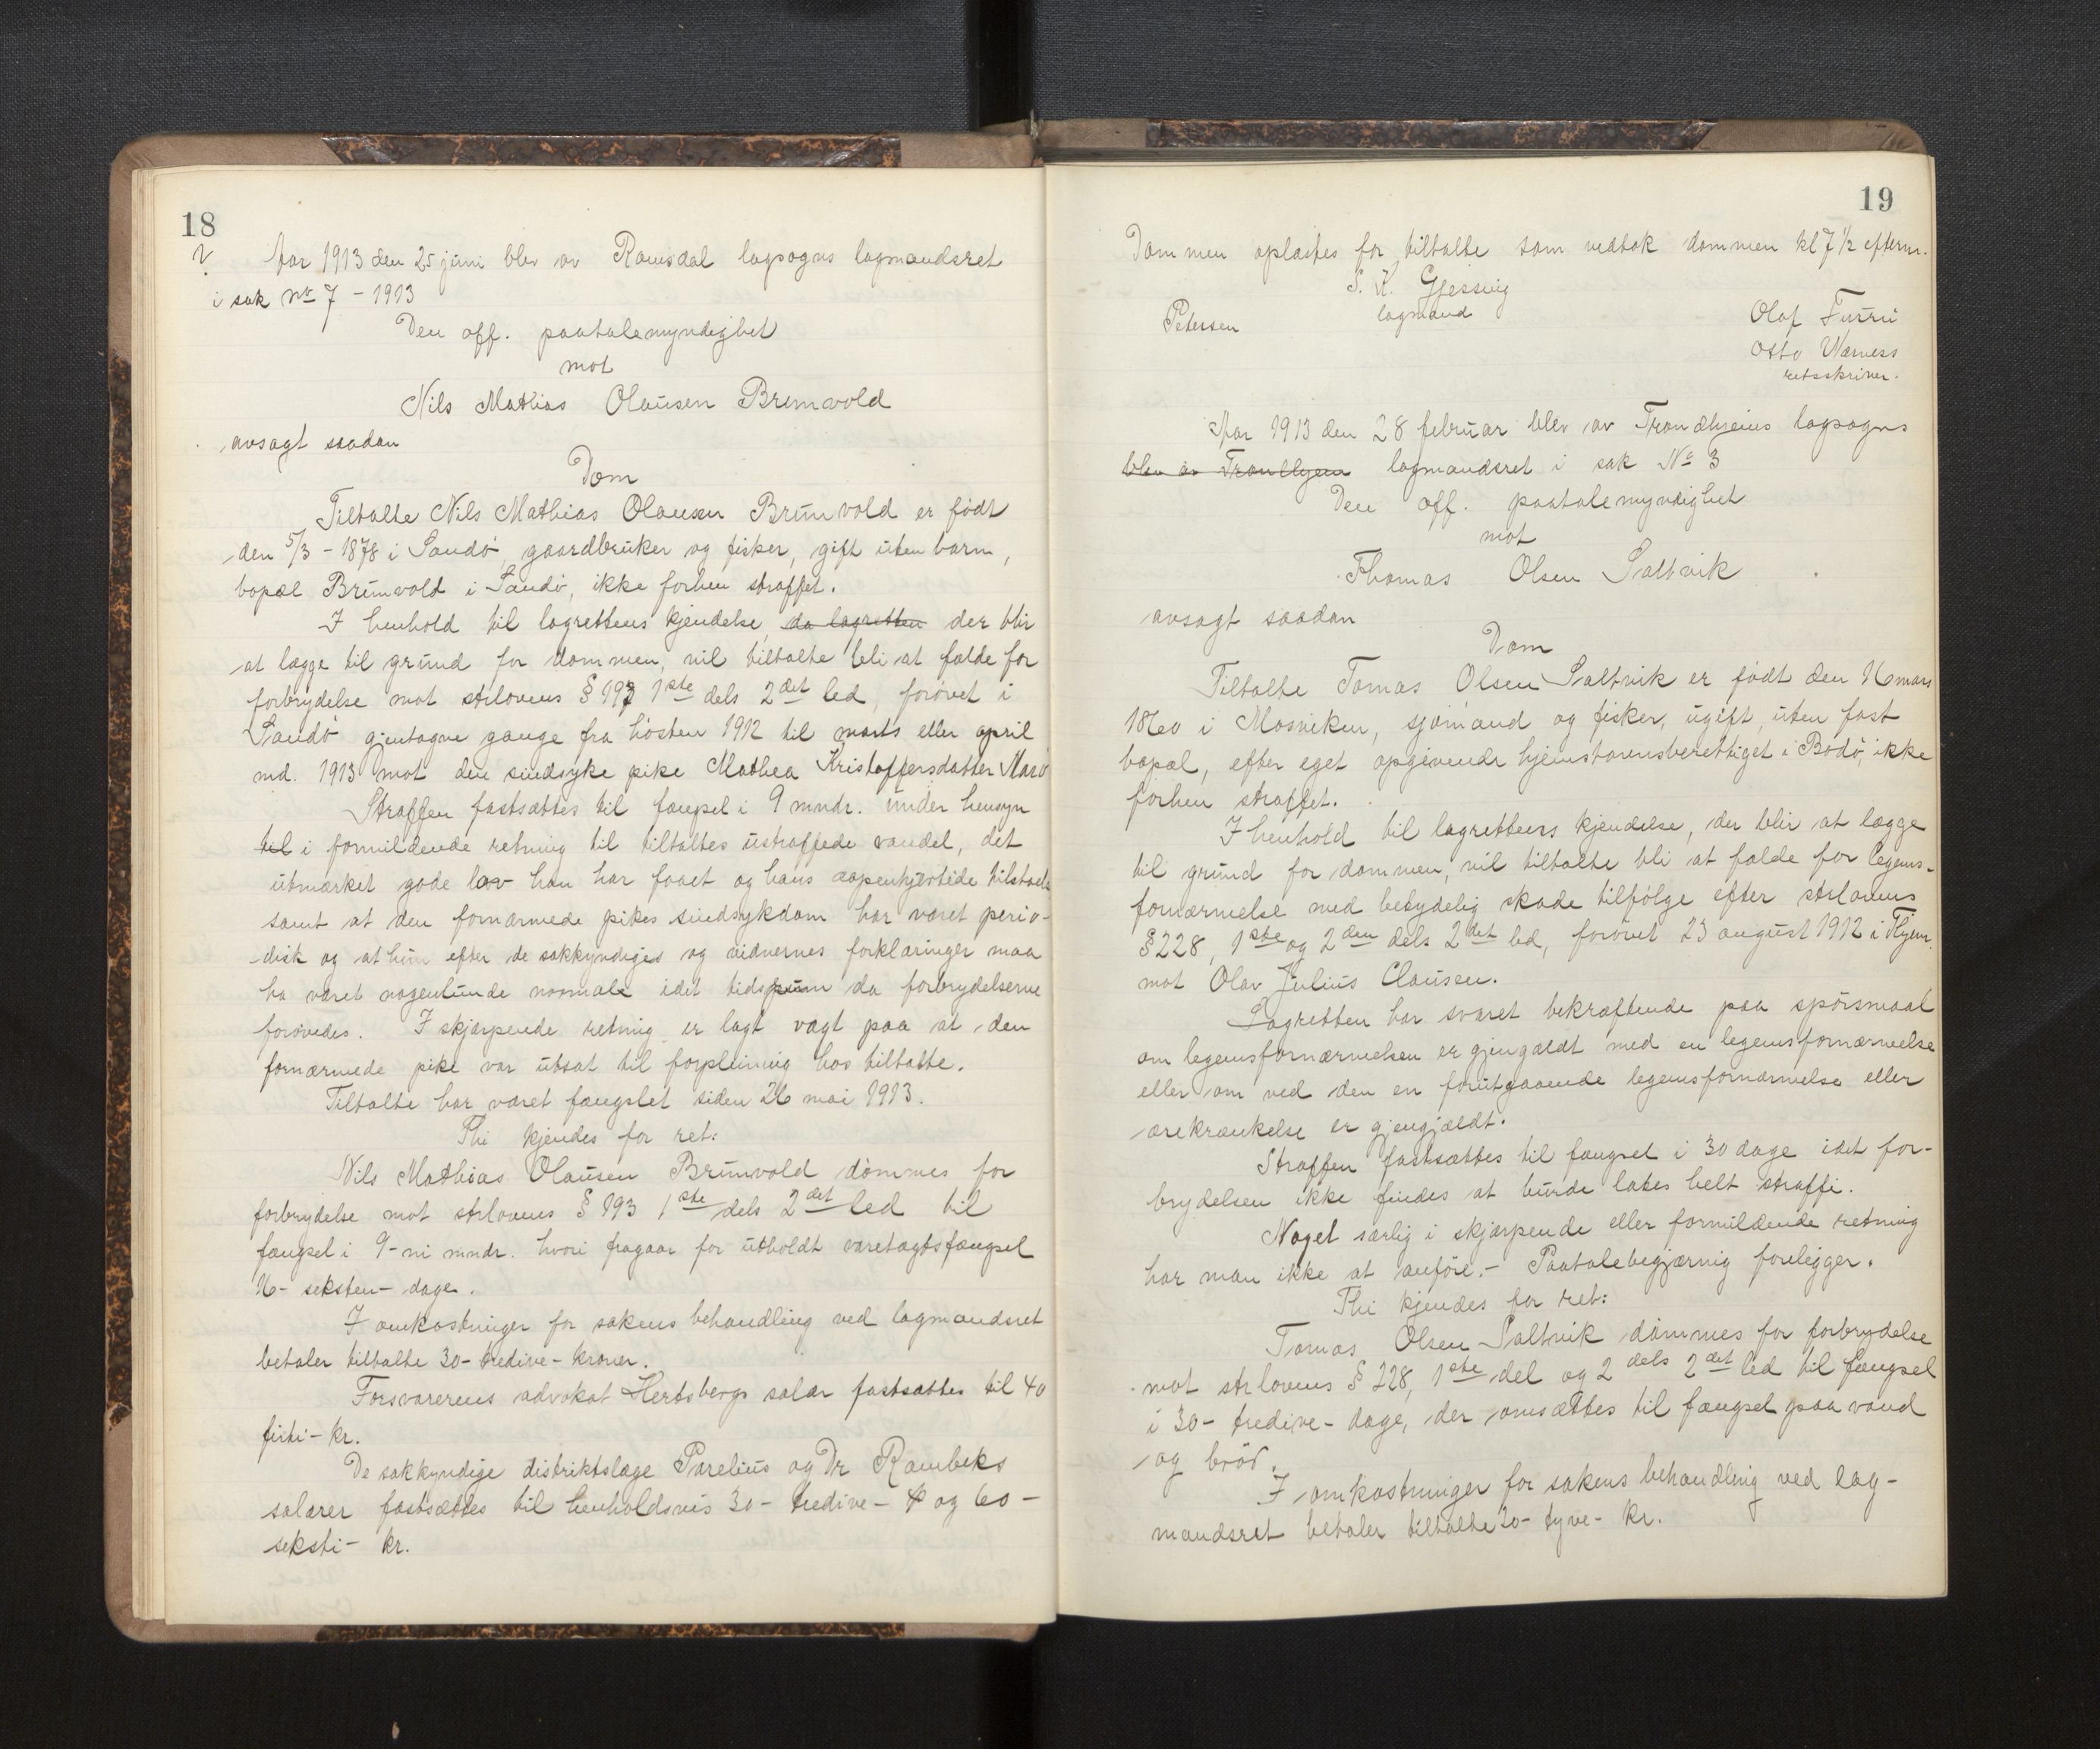 18
V. Aar 1913 den 25 juni blev av Romsdal lagsogns lagmandsret
i sak nr 7 - 1913
Den off. paatalemyndighet
mot
Nils Mathias Olausen Brunvold
avsagt saadan
Dom
Tiltalte Nils Mathias Olausen Brunvold er født
den 5/3 - 1878 i Sandö, gaardbruker og fisker, gift uten barn,
bopæl Brunvold i Sandö, ikke forhen straffet.
I henhold til lagrettens kjendelse, da lagretten der blir
at lægge til grund for dommen, vil tiltalte bli at fælde for
forbrydelse mot strlovens § 193 1ste dels 2det led, forövet i
Sandö gjentagne gange fra hösten 1912 til marts eller april
md. 1913 mot den sindsyke pike Mathea Kristoffersdatter
Straffen fastsættes til fængsel i 9 mndr. under hensyn
til i formildende retning til tiltaltes ustraffede vandel, det
utmærket gode lov han har faaet og hans aapenhjertede tilstaaelse
samt at den fornærmede pikes sindsykdom har været perio-
disk og at hun efter de sakkyndiges og vidnernes forklaringer maa
ha været nogenlunde normale i det tidsrum da forbrydelserne
forövedes. I skjærpende retning er lagt vægt paa at den
fornærmede pike var utsat til forpleining hos tiltalte.
Tiltalte har været fængslet siden 26 mai 1913.
Thi kjendes for ret:
Nils Mathias Olausen Brunvold dömmes for
forbrydelse mot strlovens § 193 1ste dels 2det led til
fængsel i 9 - ni mndr. hvori fragaar for utholdt varetægtsfængsel
16 - seksten - dage.
I omkostninger for sakens behandling ved lagmandsret
betaler tiltalte 30 - tredive - kroner.
Forsvarerens advokat Hertsbergs salær fastsættes til 40
firti - kr.
De sakkyndige distriktslæge Parelius og Dr Rambeks
salærer fastsættes til henholdsvis 30 - tredive - og 60 -
seksti - kr.
19
Dommen oplæstes for tiltalte som vedtok dommen kl 7 1/2 efterm.
S. K. Gjessing
lagmand
Petersen
Olaf Furru
Otto Værness
retsskriver.
Aar 1913 den 28 februar blev av Trondhjems lagsogns
blev av Trondhjem lagmandsret i sak No 3
Den off. paatalemyndighet
mot
Thomas Olsen Saltvik
avsagt saadan
Dom
Tiltalte Tomas Olsen Saltvik er født den 16 mars
1860 i Mosviken, sjömand og fisker, ugift, uten fast
bopæl, efter eget opgivende hjemstavnsberettiget i Bodö, ikke
forhen straffet.
I henhold til lagrettens kjendelse, der blir at lægge
til grund for dommen, vil tiltalte bli at fælde for legems-
fornærmelse med betydelig skade tilfölge efter strlovens
§ 228, 1ste og 2den dels 2det led, forövet 23 august 1912 i Thjem.
mot Olav Julius Clausen.
Lagretten har svaret bekræftende paa spörsmaal
om legemsfornærmelsen er gjengældt med en legemsfornærmelse
eller om ved den en forutgaaende legemsfornærmelse eller
ærekrænkelse er gjengjældt.
Straffen fastsættes til fængsel i 30 dage idet for-
brydelsen ikke findes at burde lates helt straffri.
Noget særlig i skjærpende eller formildende retning
har man ikke at anföre. - Paatalebegjærnig foreligger.
Thi kjendes for ret:
Tomas Olsen Saltvik dömmes for forbrydelse
mot strlovens § 228, 1ste del og 2 dels 2det led til fængsel
i 30 - tredive - dage, der omsættes til fængsel paa vand
og bröd.
I omkostninger for sakens behandling ved lag-
mandsret betaler tiltalte 20 - tyve - kr.